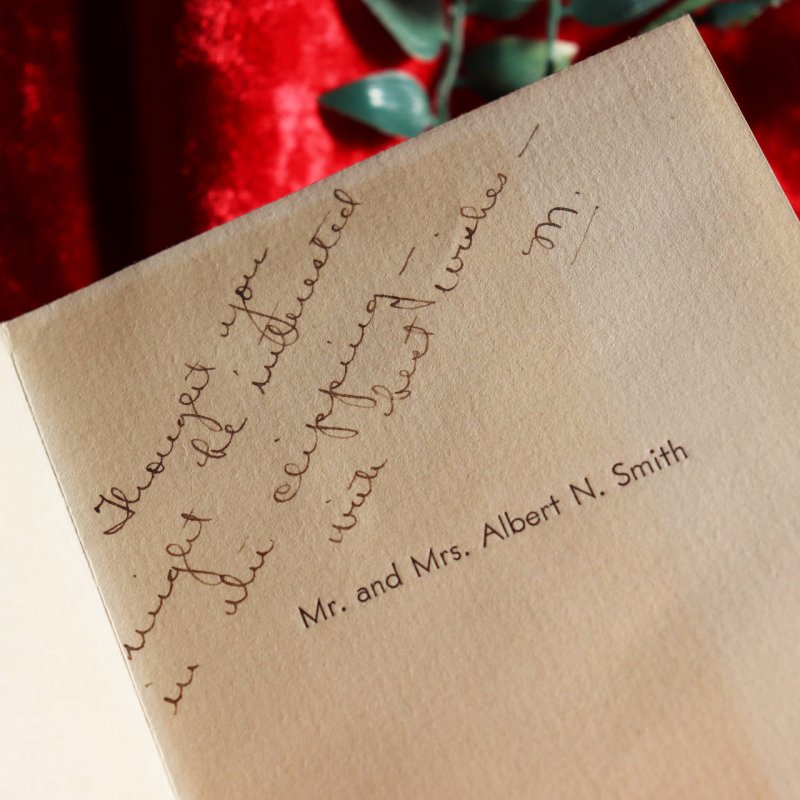 Thought you
might be interested
in this clipping —
with best wishes —
M.
Mr. and Mrs. Albert N. Smith